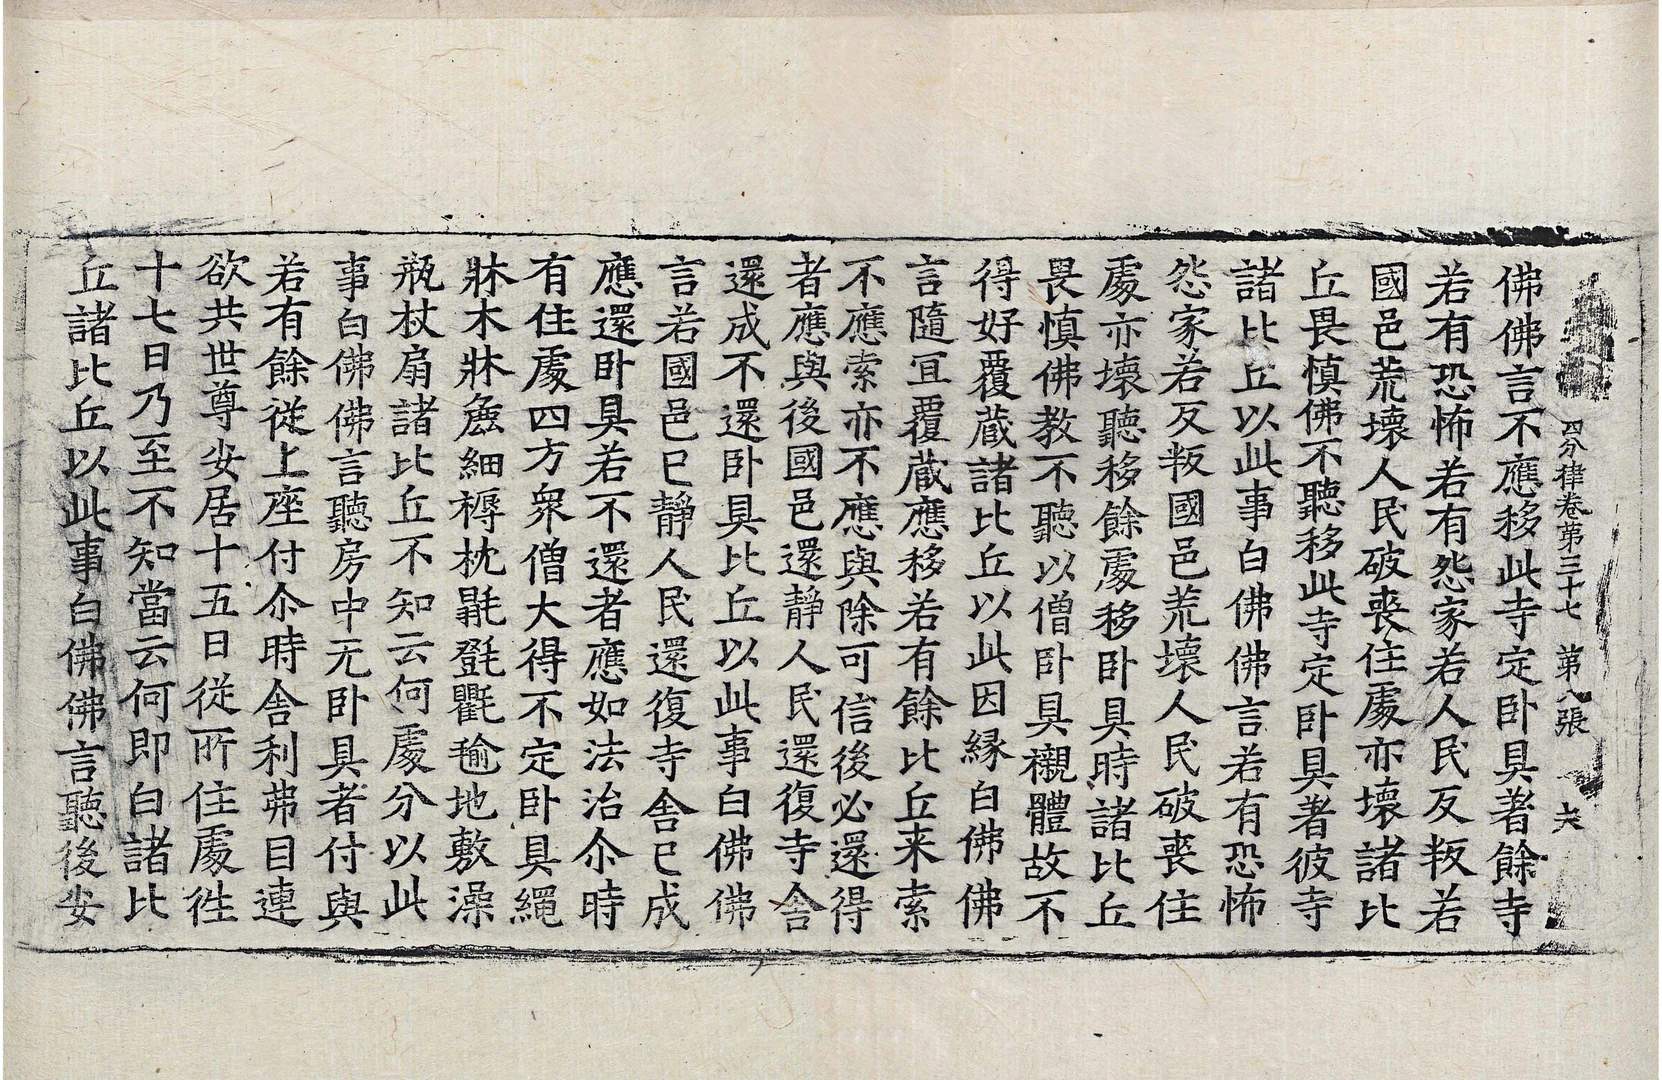 四分律卷第三十七 第八張 六
佛佛言不應移此寺定卧具著餘寺
若有恐怖若有怨家若人民反叛若
國邑荒壞人民破喪住處亦壞諸比
丘畏慎佛不聽移此寺定卧具著彼寺
諸比丘以此事白佛佛言若有恐怖
怨家若反叛國邑荒壞人民破喪住
處亦壞聽移餘處移卧具時諸比丘
畏慎佛教不聽以僧卧具襯體故不
得好覆藏諸比丘以此因緣白佛佛
言隨冝覆蔵應移若有餘比丘来索
不應索亦不應與除可信後必還得
者應與後國邑還靜人民還復寺舍
還成不還卧具比丘以此事白佛佛
言若國邑已靜人民還復寺舍已成
應還卧具若不還者應如法治尒時
有住處四方衆僧大得不定卧具繩
牀木牀麁細褥枕氍㲪氍毹地敷澡
瓶杖扇諸比丘不知云何處分以此
事白佛佛言聽房中无卧具者付與
若有餘從上座付尒時舍利弗目連
欲共世尊安居十五日從所住處徃
十七日乃至不知當云何即白諸比
丘諸比丘以此事白佛佛言聽後安